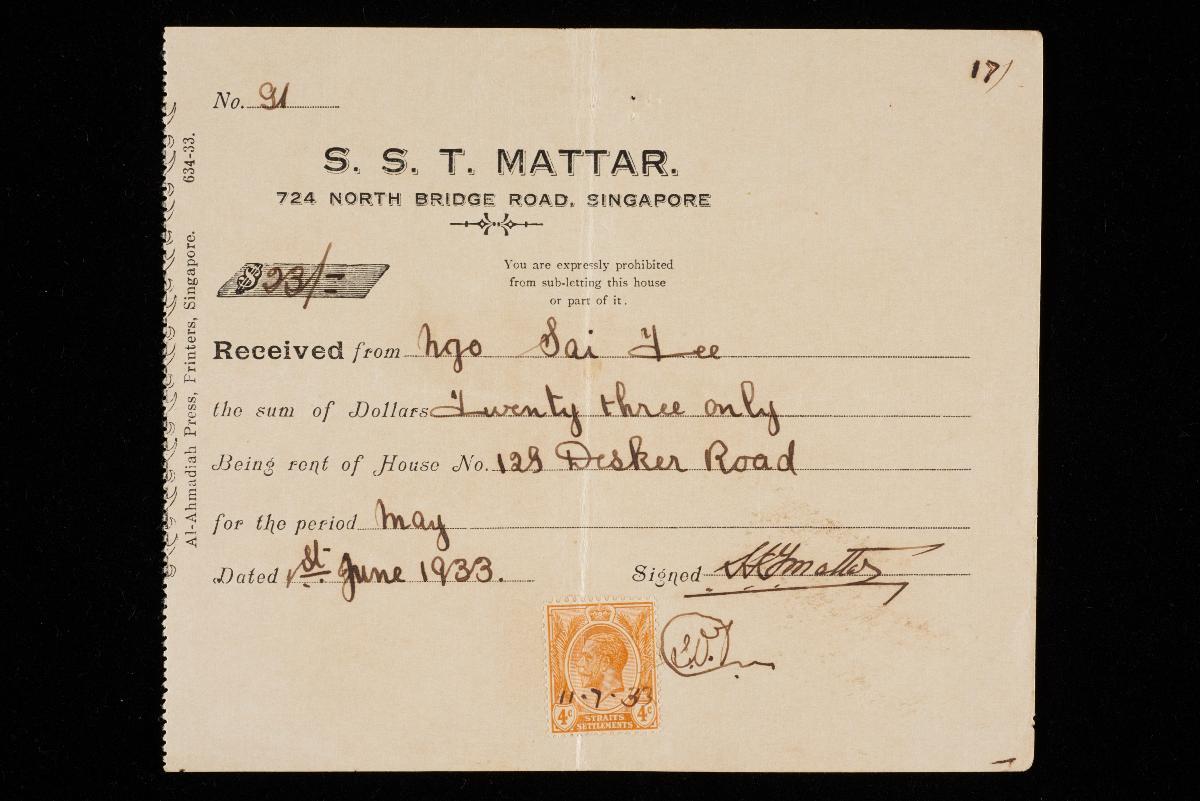 17/
No. 91
S. S. T. MATTAR.
724 NORTH BRIDGE ROAD, SINGAPORE
$ 23/=
You are expressly prohibited
from sub-letting this house
or part of it.
Received from Ngo Sai Tee
the sum of Dollars Twenty three only
Being rent of House No. 129 Desker Road
for the period May
Dated 1st June 1933.
Signed SSTmattar
11-7-33
4c STRAITS SETTLEMENTS 4c
Al-Ahmadiah Press, Printers, Singapore. 634-33.